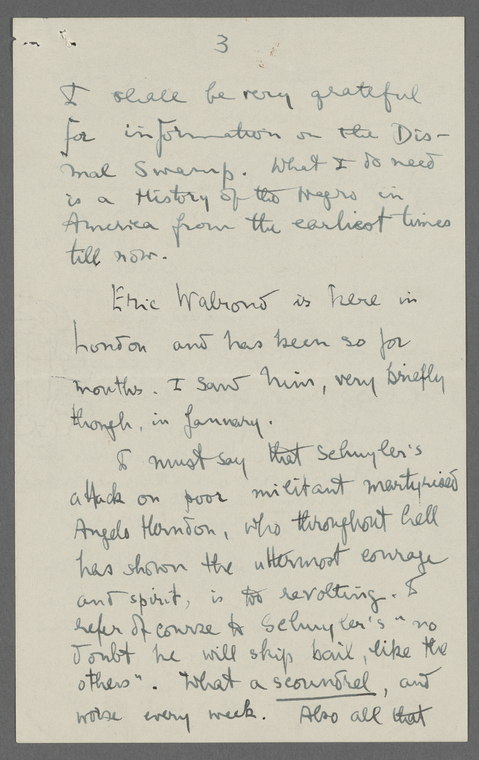 3
I shall be very grateful
for information on the Dis-
mal Swamp. What I do need
is a History of the Negro in
America from the earliest times
till now.
Eric Walrond is here in
London and has been so for
months. I saw him, very briefly
though, in January.
I must say that Schuyler's
attack on poor militant martyrised
Angelo Herndon, who throughout hell
has shown the uttermost courage
and spirit, is too revolting. I
refer of course to Schuyler's "no
doubt he will skip bail, like the
others". What a scoundrel, and
worse every week. Also all that